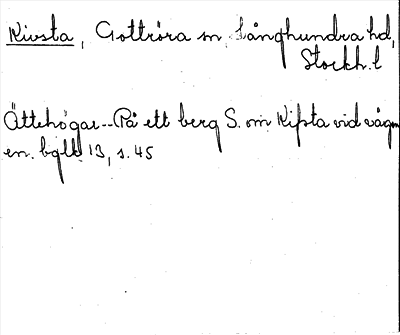 Kivsta, Gottröra sn Långhundra hd,
Stockh. l
Ättehögar--På ett berg S. om Kipsta vid vägen
en. bglb 13, s. 45